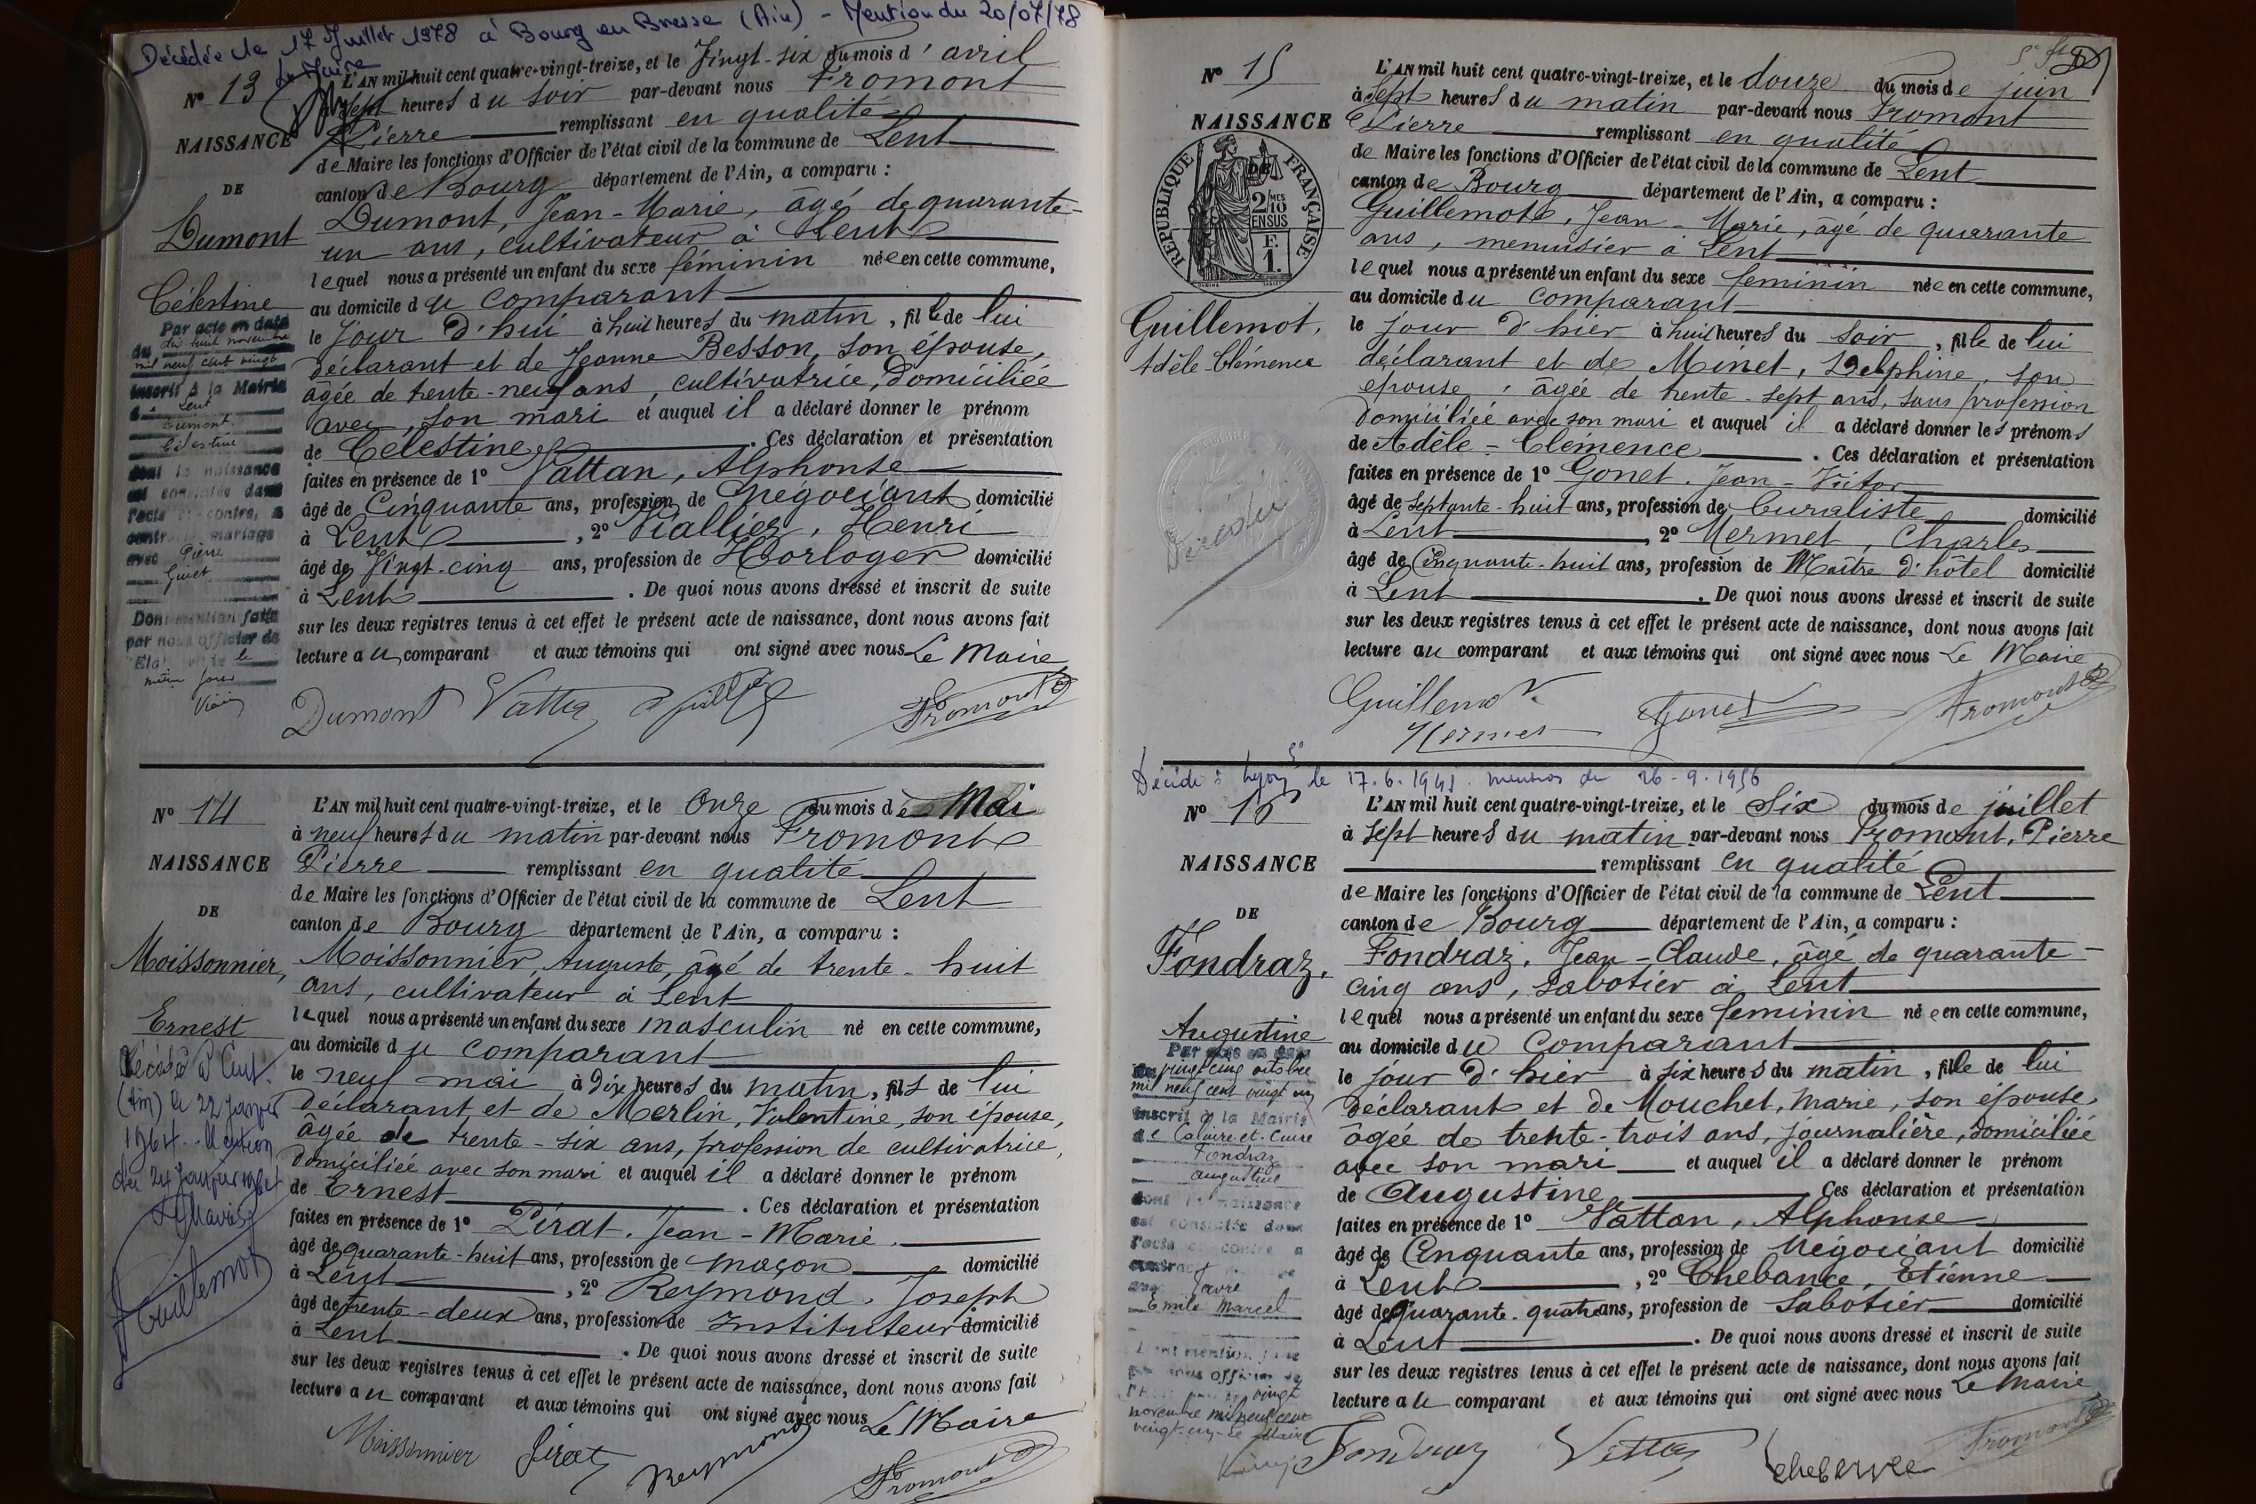 Décédée le 17 Juillet 1978 à Bourg en Bresse (Ain) - Mention du 20/07/78
Le Maire
N° 13
NAISSANCE
DE
Dumont
Célestine
Par acte en date
du dix huit novembre
mil neuf cent vingt
inscrit à la Mairie
à Lent
Dumont
Célestine
dont la naissance
est constatée dans
l'acte ci-contre, a
contracté mariage
avec Pierre
Guiet
Dont mention faite
par nous officier de
Etat le
même jour
L'AN mil huit cent quatre-vingt-treize, et le Vingt-six du mois d'avril
à sept heures du soir par-devant nous Fromont
Pierre remplissant en qualité
de Maire les fonctions d'Officier de l'état civil de la commune de Lent
canton de Bourg département de l'Ain, a comparu :
Dumont, Jean-Marie, âgé de quarante-
un ans, cultivateur à Lent
lequel nous a présenté un enfant du sexe féminin née en cette commune,
au domicile du comparant
le jour d'hui à huit heures du matin, fille de lui
déclarant et de Jeanne Besson, son épouse,
âgée de trente-neuf ans, cultivatrice, domiciliée
avec son mari et auquel il a déclaré donner le prénom
de Célestine. Ces déclaration et présentation
faites en présence de 1° Vattan, Alphonse
âgé de Cinquante ans, profession de Négociant domicilié
à Lent, 2° Viallier, Henri
âgé de Vingt-cinq ans, profession de Horloger domicilié
à Lent. De quoi nous avons dressé et inscrit de suite
sur les deux registres tenus à cet effet le présent acte de naissance, dont nous avons fait
lecture au comparant et aux témoins qui ont signé avec nous Le Maire
Dumont Vattan Fromont
N° 14
NAISSANCE
DE
Moissonnier,
Ernest
Décédé à Lent
(Ain) le 22 janvier
1964. Mention
du 24 janvier 1964
Guillemot
L'AN mil huit cent quatre-vingt-treize, et le onze du mois de Mai
à neuf heures du matin par-devant nous Fromont
Pierre remplissant en qualité
de Maire les fonctions d'Officier de l'état civil de la commune de Lent
canton de Bourg département de l'Ain, a comparu :
Moissonnier, Auguste, âgé de trente-huit
ans, cultivateur à Lent
lequel nous a présenté un enfant du sexe masculin né en cette commune,
au domicile du comparant
le neuf mai à dix heures du matin, fils de lui
déclarant et de Merlin, Valentine, son épouse,
âgée de trente-six ans, profession de cultivatrice,
domiciliée avec son mari et auquel il a déclaré donner le prénom
de Ernest. Ces déclaration et présentation
faites en présence de 1° Pirat, Jean-Marie
âgé de quarante-huit ans, profession de maçon domicilié
à Lent, 2° Reymond, Joseph
âgé de trente-deux ans, profession de Instituteur domicilié
à Lent. De quoi nous avons dressé et inscrit de suite
sur les deux registres tenus à cet effet le présent acte de naissance, dont nous avons fait
lecture au comparant et aux témoins qui ont signé avec nous Le Maire
Moissonnier Pirat Reymond Fromont
N° 15
NAISSANCE
DE
RÉPUBLIQUE FRANÇAISE
2/10 MES
EN SUS
F.
1.
Guillemot,
Adèle-Clémence
Décédée
L'AN mil huit cent quatre-vingt-treize, et le douze du mois de juin
à sept heures du matin par-devant nous Fromont
Pierre remplissant en qualité
de Maire les fonctions d'Officier de l'état civil de la commune de Lent
canton de Bourg département de l'Ain, a comparu :
Guillemot, Jean-Marie, âgé de quarante
ans, menuisier à Lent
lequel nous a présenté un enfant du sexe féminin née en cette commune,
au domicile du comparant
le jour d'hier à huit heures du soir, fille de lui
déclarant et de Minet, Delphine, son
épouse, âgée de trente-sept ans, sans profession
domiciliée avec son mari et auquel il a déclaré donner les prénoms
de Adèle-Clémence. Ces déclaration et présentation
faites en présence de 1° Gonet, Jean-Victor
âgé de septante-huit ans, profession de Buraliste domicilié
à Lent, 2° Mermet, Charles
âgé de Cinquante-huit ans, profession de Maître d'hôtel domicilié
à Lent. De quoi nous avons dressé et inscrit de suite
sur les deux registres tenus à cet effet le présent acte de naissance, dont nous avons fait
lecture au comparant et aux témoins qui ont signé avec nous Le Maire
Guillemot Gonet Fromont
Mermet
Décédée à Lyon 5e le 17.6.1941. mention du 26-9-1956
N° 16
NAISSANCE
DE
Fondraz,
Augustine
Par acte en date
du vingt cinq octobre
mil neuf cent vingt un
inscrit à la Mairie
de Caluire-et-Cuire
Fondraz
Augustine
dont la naissance
est constatée dans
l'acte ci-contre a
contracté
avec Favre
Emile Marcel
Dont mention faite
par nous officier de
vingt
novembre mil neuf cent
vingt-un - Le Maire
L'AN mil huit cent quatre-vingt-treize, et le Six du mois de juillet
à sept heures du matin par-devant nous Fromont, Pierre
remplissant en qualité
de Maire les fonctions d'Officier de l'état civil de la commune de Lent
canton de Bourg département de l'Ain, a comparu :
Fondraz, Jean-Claude, âgé de quarante-
cinq ans, sabotier à Lent
lequel nous a présenté un enfant du sexe féminin née en cette commune,
au domicile du comparant
le jour d'hier à six heures du matin, fille de lui
déclarant et de Mouchet, Marie, son épouse,
âgée de trente-trois ans, journalière, domiciliée
avec son mari et auquel il a déclaré donner le prénom
de Augustine Ces déclaration et présentation
faites en présence de 1° Vattan, Alphonse
âgé de Cinquante ans, profession de Négociant domicilié
à Lent, 2° Chebance, Etienne
âgé de quarante-quatre ans, profession de Sabotier domicilié
à Lent. De quoi nous avons dressé et inscrit de suite
sur les deux registres tenus à cet effet le présent acte de naissance, dont nous avons fait
lecture au comparant et aux témoins qui ont signé avec nous Le Maire
Fondraz Vattan Chebance Fromont